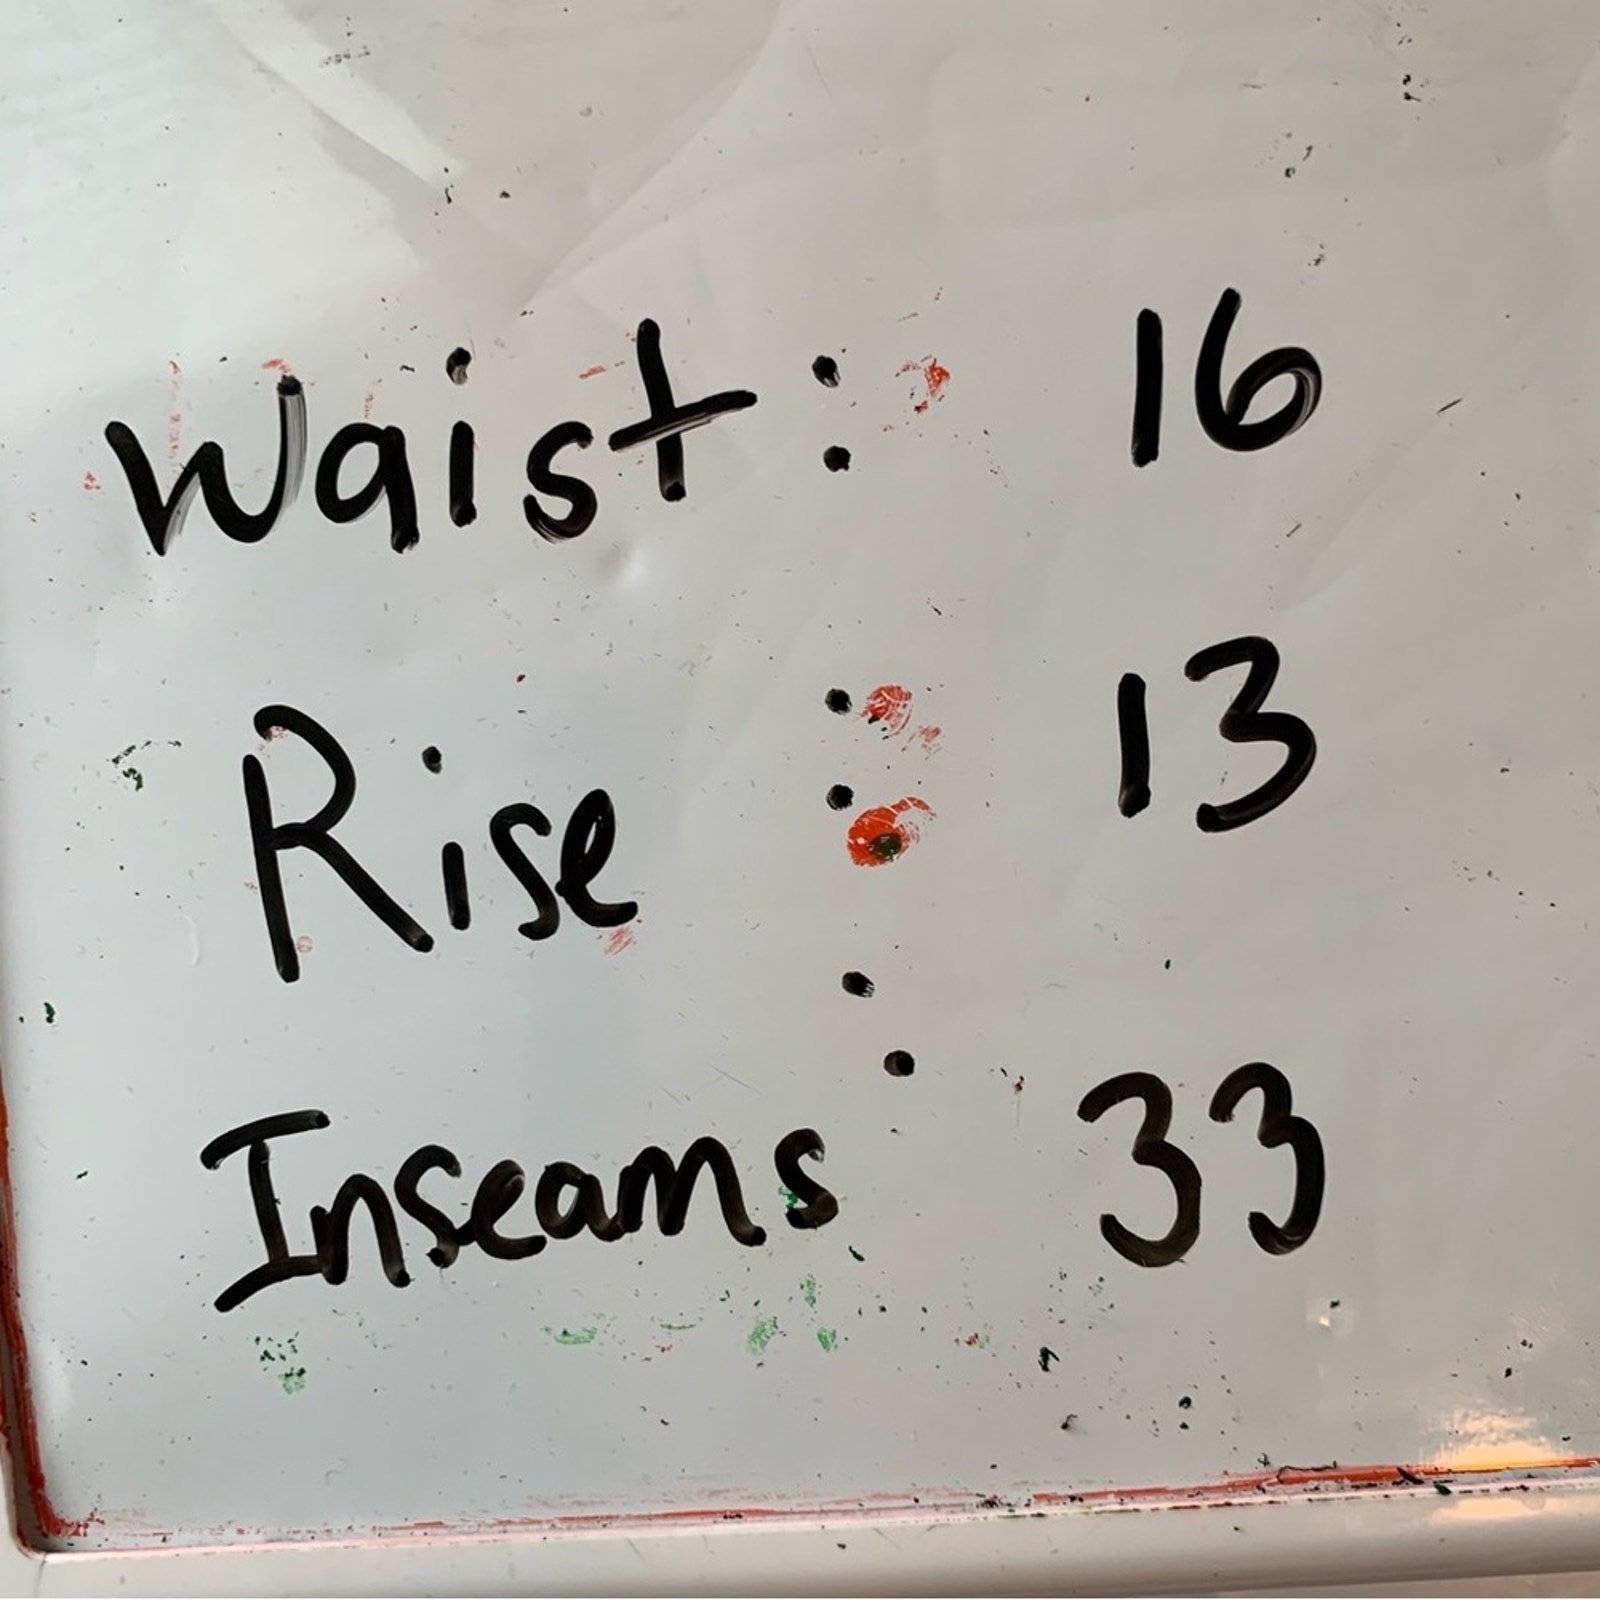 Waist : 16
Rise : 13
Inseams : 33